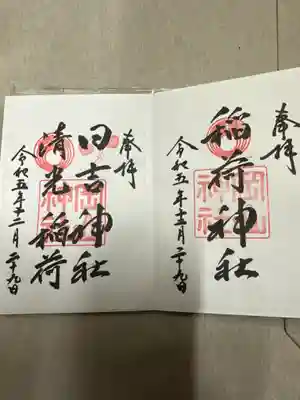 奉拝
稲荷神社
岡山
神社
令和五年十二月二十九日
奉拝
日吉神社
清光稲荷
令和五年十二月二十九日